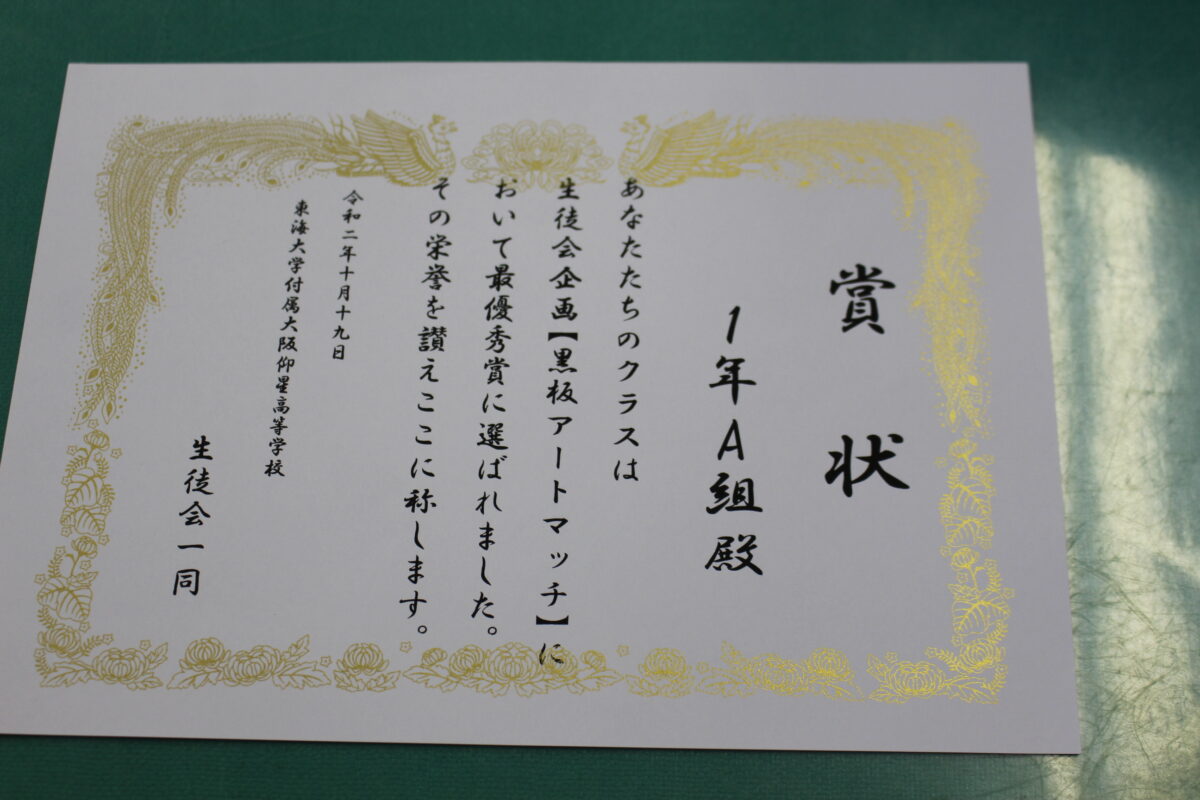 賞状
1年A組殿
あなたたちのクラスは
生徒会企画【黒板アートマッチ】に
おいて最優秀賞に選ばれました。
その栄誉を讃えここに称します。
令和二年十月十九日
東海大学付属大阪仰星高等学校
生徒会一同